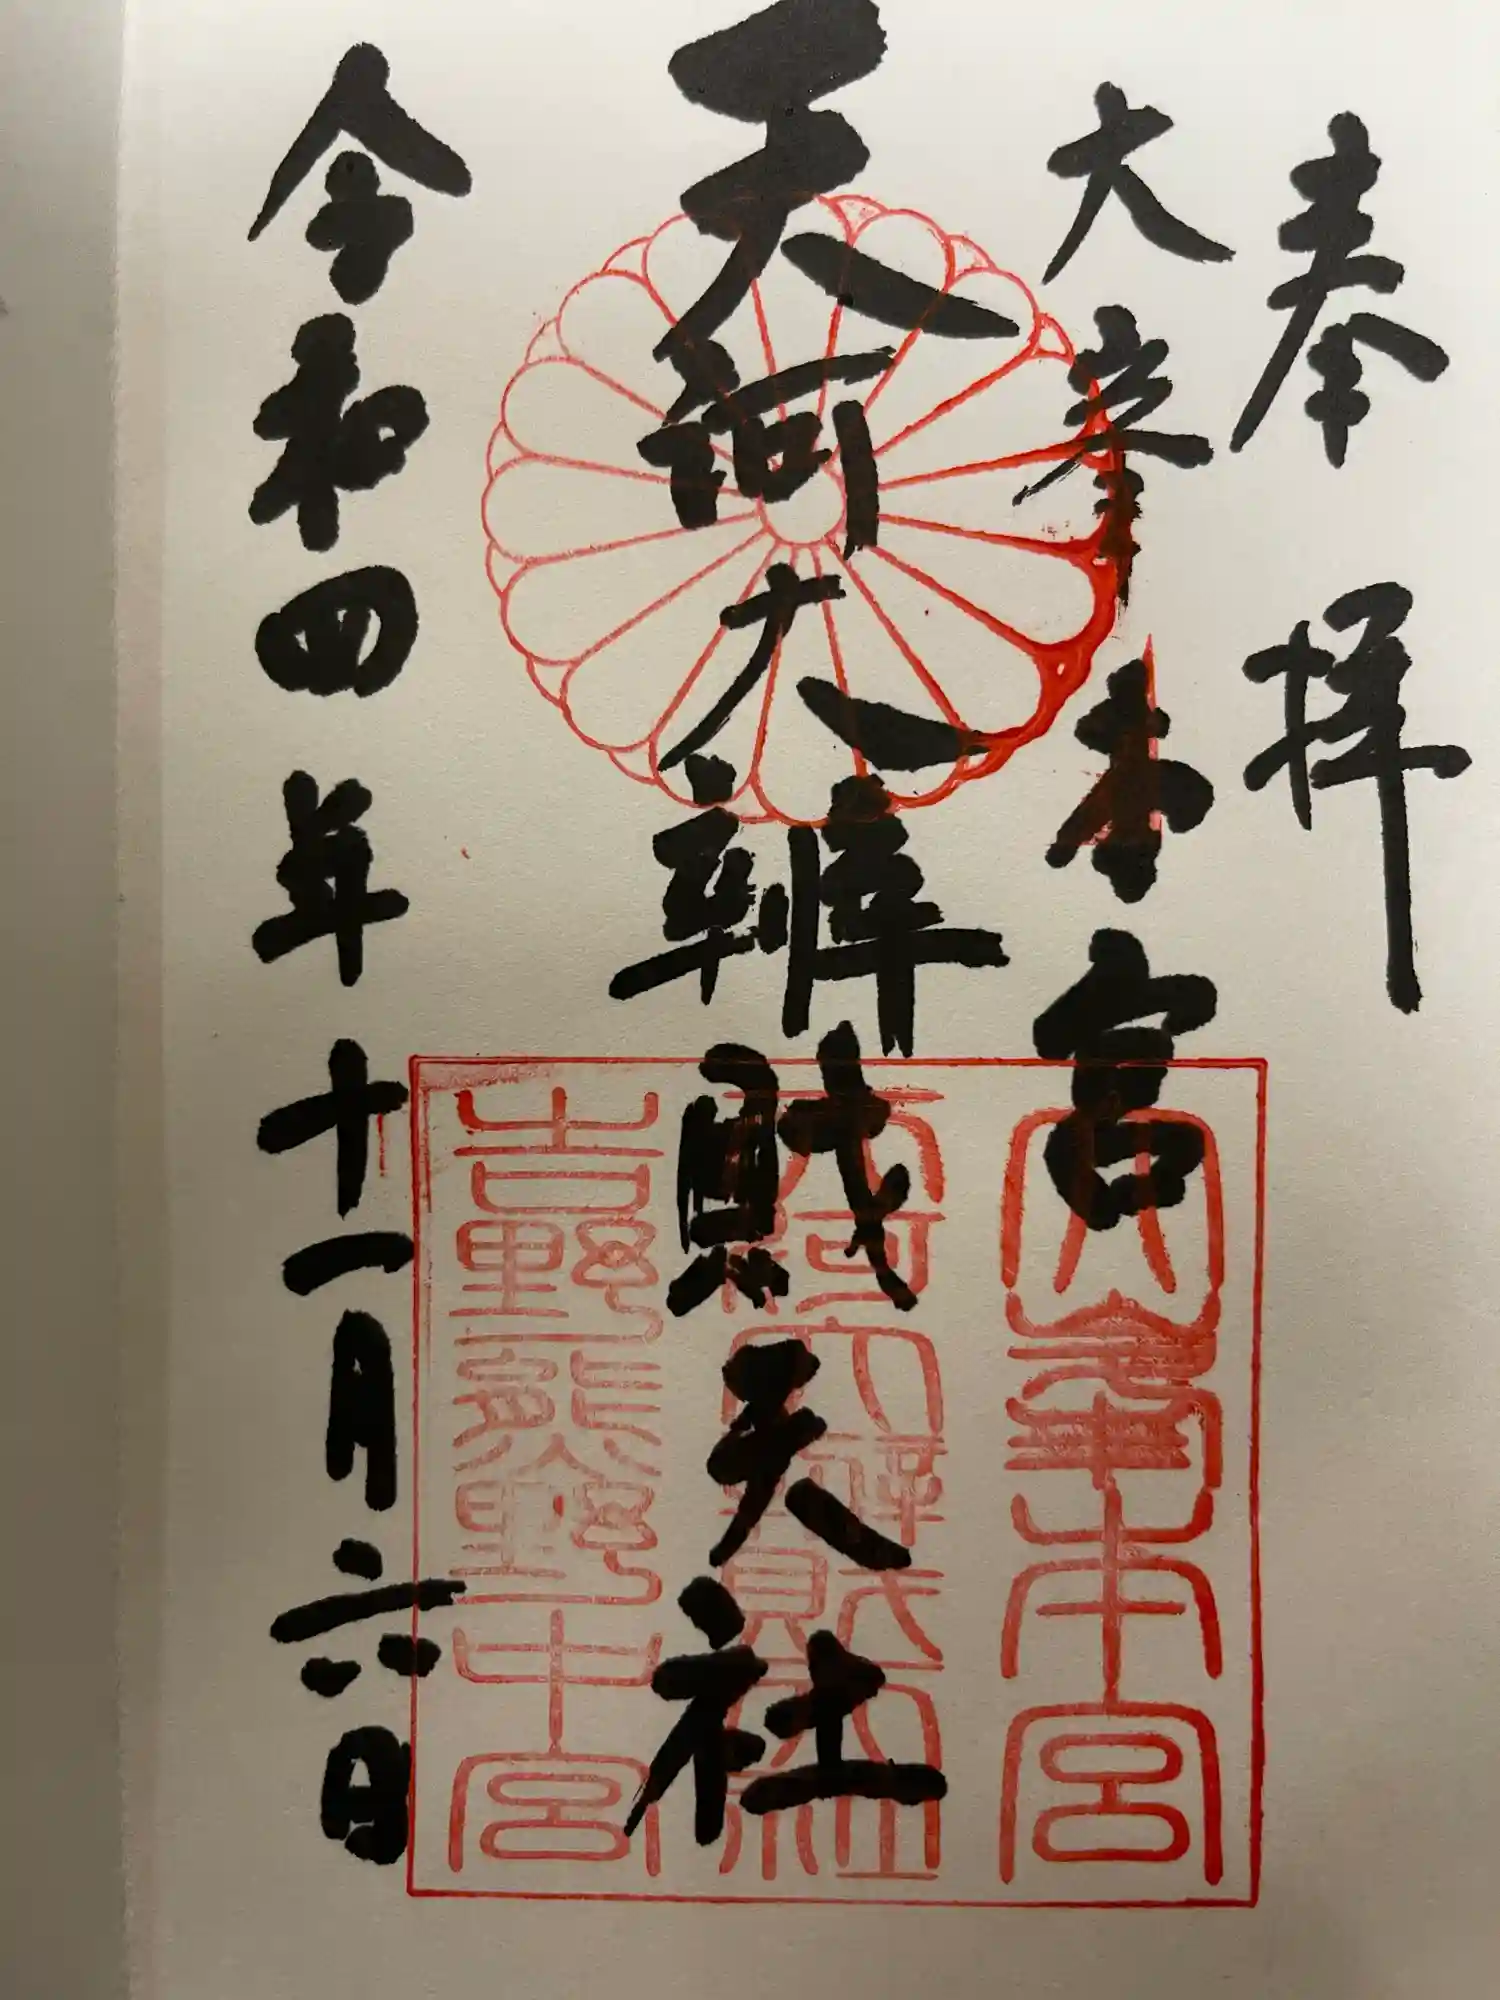 奉拝
大峯本宮
天河大辨財天社
令和四年十一月六日
六峯本宮
天河大辨財天社
吉野熊野中宮